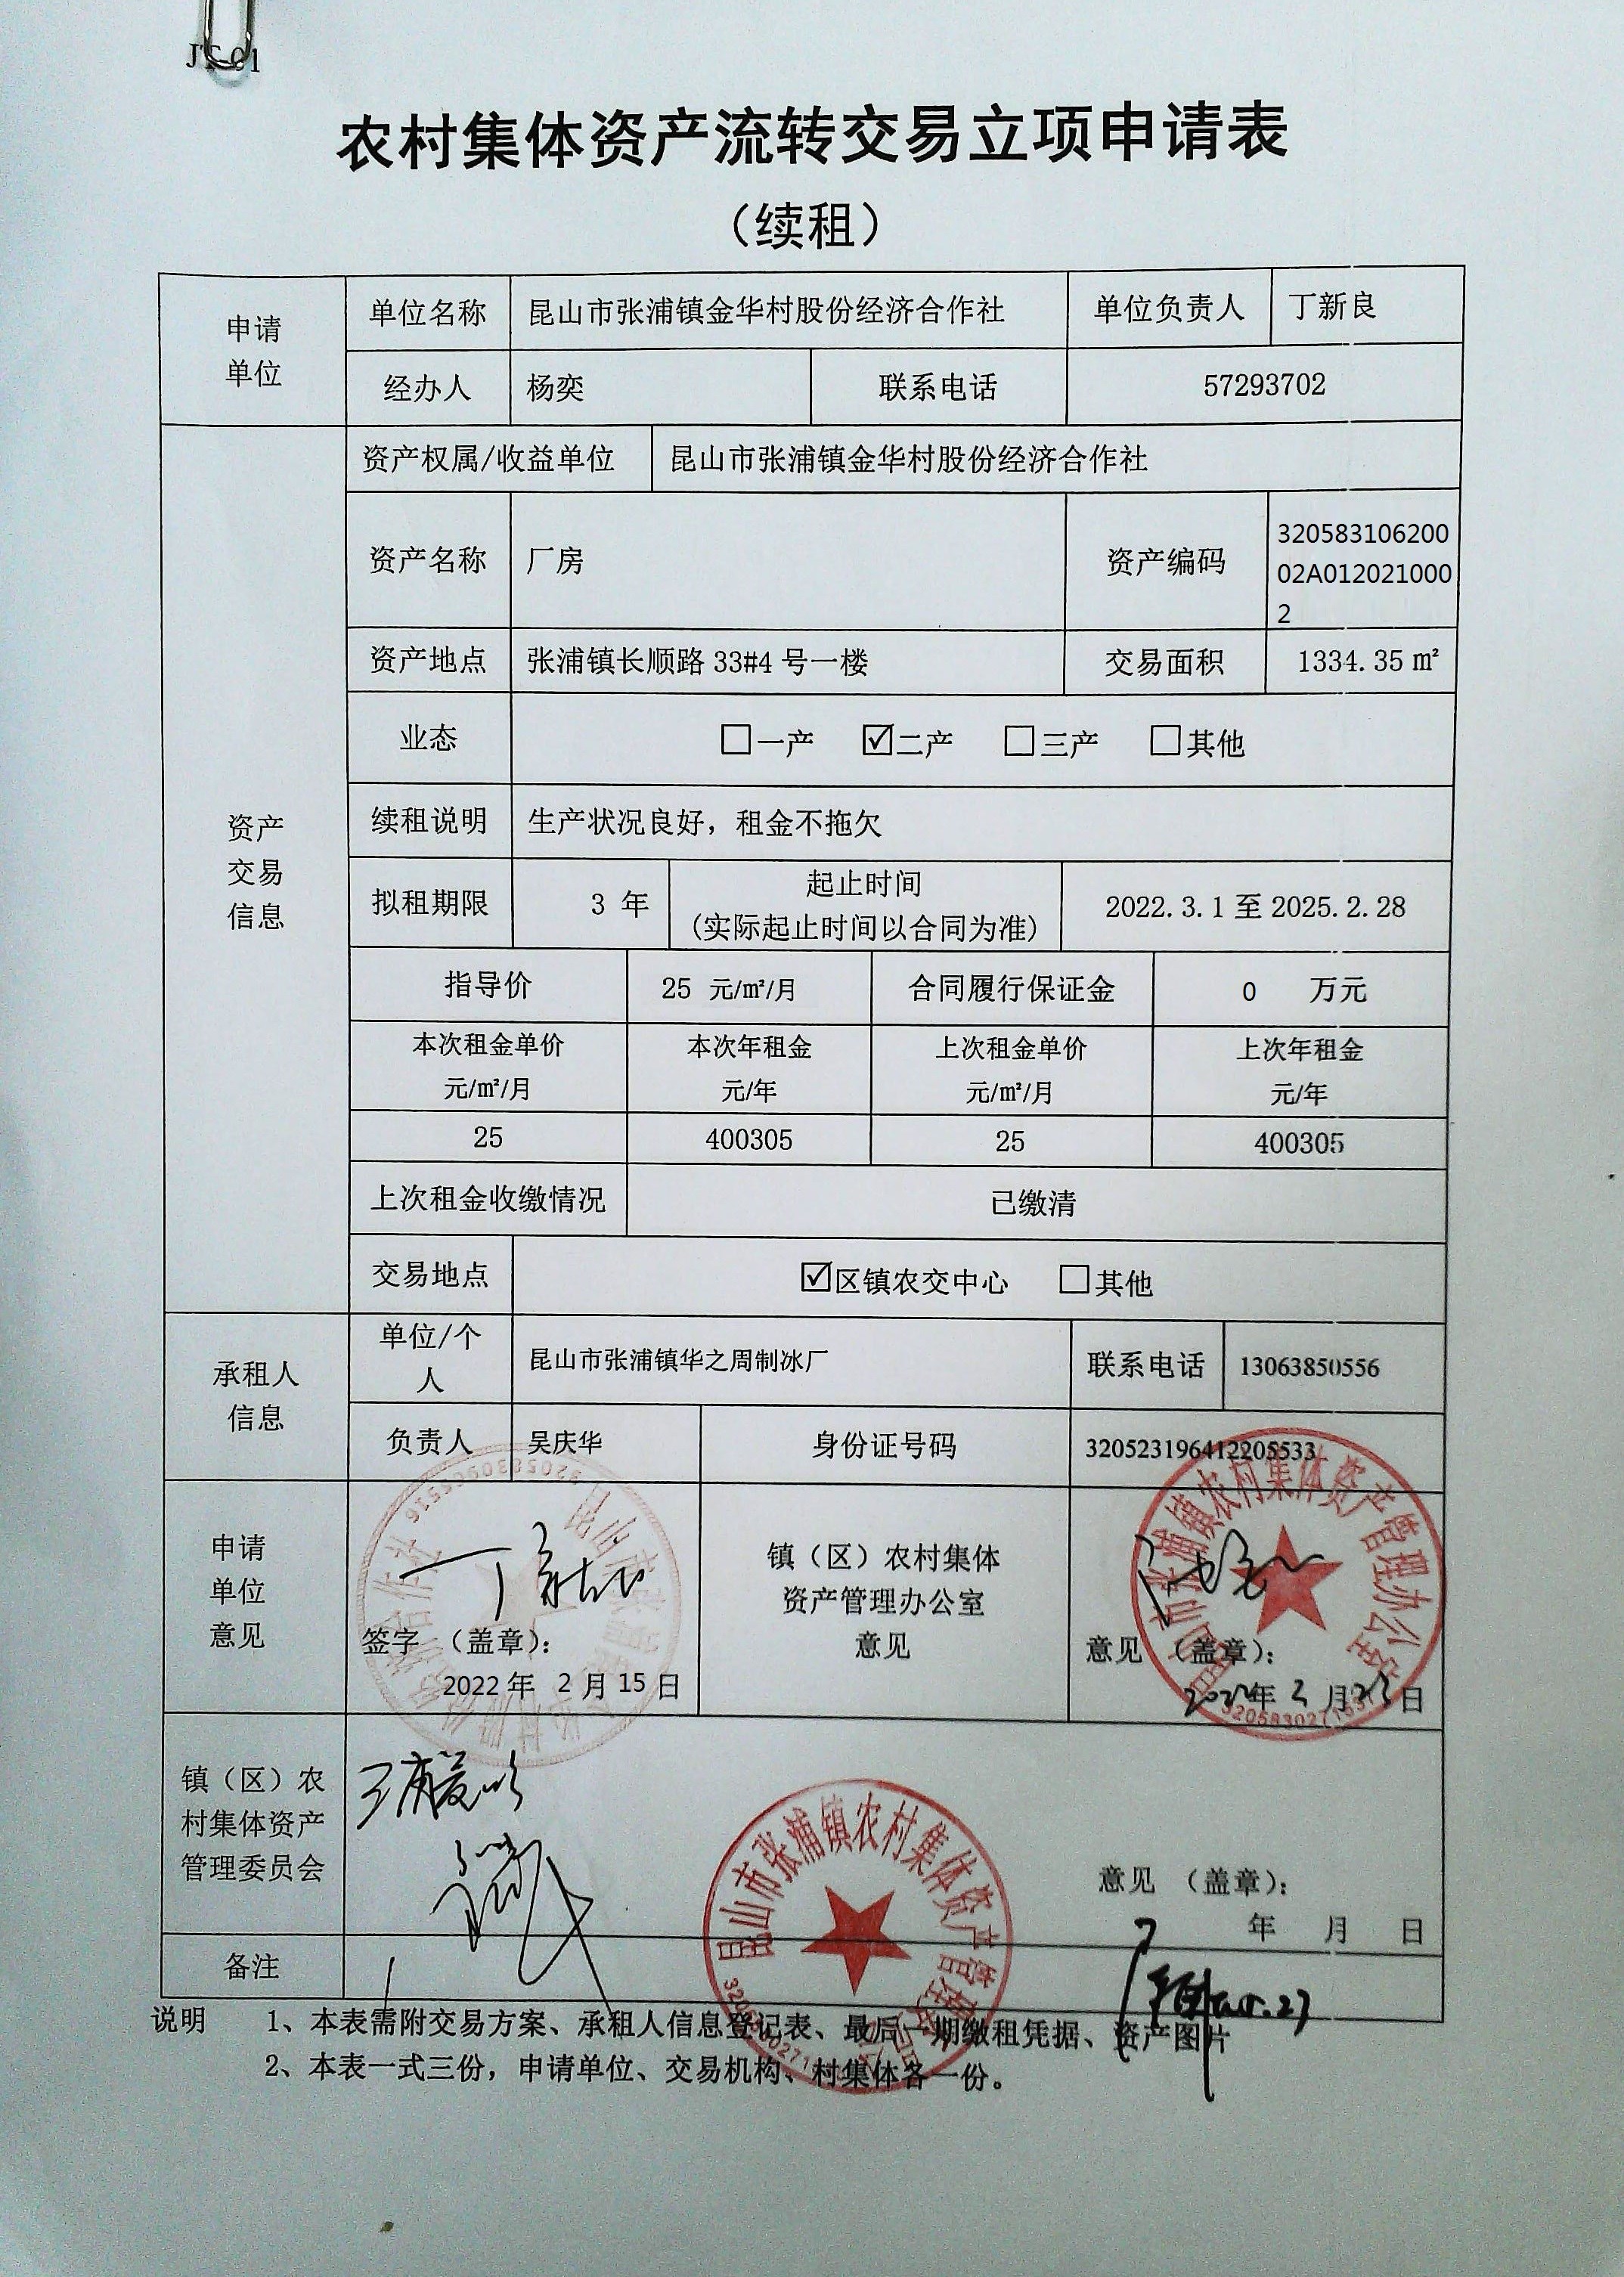 农村集体资产流转交易立项申请表
（续租）
申请
单位
单位名称 昆山市张浦镇金华村股份经济合作社 单位负责人 丁新良
经办人 杨奕 联系电话 57293702
资产
交易
信息
资产权属/收益单位 昆山市张浦镇金华村股份经济合作社
资产名称 厂房 资产编码
320583106200
02A012021000
2
资产地点 张浦镇长顺路 33#4 号一楼 交易面积 1334.35 ㎡
业态 □一产 ☑二产 □三产 □其他
续租说明 生产状况良好，租金不拖欠
拟租期限 3 年
起止时间
(实际起止时间以合同为准)
2022.3.1 至 2025.2.28
指导价 25 元/㎡/月 合同履行保证金 0 万元
本次租金单价 本次年租金 上次租金单价 上次年租金
元/㎡/月 元/年 元/㎡/月 元/年
25 400305 25 400305
上次租金收缴情况 已缴清
交易地点 ☑区镇农交中心 □其他
承租人
信息
单位/个
人
昆山市张浦镇华之周制冰厂 联系电话 13063850556
负责人 吴庆华 身份证号码 320523196412205533
申请
单位
意见
丁新良
签字 （盖章）：
2022 年 2 月 15 日
镇（区）农村集体
资产管理办公室
意见
昆山市张浦镇农村集体资产管理办公室
意见 （盖章）：
2022年 2 月23日
镇（区）农
村集体资产
管理委员会
昆山市张浦镇农村集体资产管理委员会
意见 （盖章）：
年 月 日
备注
说明 1、本表需附交易方案、承租人信息登记表、最后一期缴租凭据、资产图片
2、本表一式三份，申请单位、交易机构、村集体各一份。